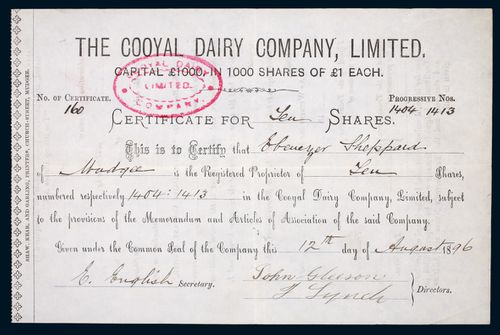 THE COOYAL DAIRY COMPANY, LIMITED.
CAPITAL £1000, IN 1000 SHARES OF £1 EACH.
COOYAL DAIRY
LIMITED.
COMPANY.
No. of Certificate.
160
Progressive Nos.
1404 1413
Certificate for Ten Shares.
This is to Certify that Ebenezer Sheppard
of Mudgee is the Registered Proprietor of Ten Shares,
numbered respectively 1404 : 1413 in the Cooyal Dairy Company, Limited, subject
to the provisions of the Memorandum and Articles of Association of the said Company.
Given under the Common Seal of the Company this 12th day of August 1896
E. English Secretary.
John Gleeson
T Lynch
Directors.
PRINTERS, CHURCH-STREET, MUDGEE.